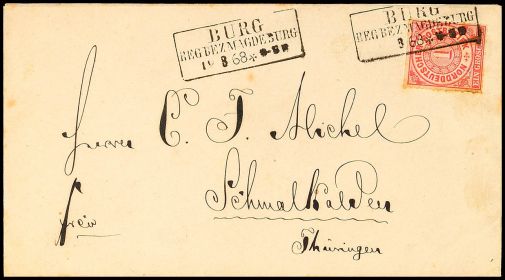 BURG
REG.BEZ.MAGDEBURG
19 8 68
BURG
REG.BEZ.MAGDEBURG
8 68
NORDDEUTSCHER
1
Herrn C. F. Michel
Schmalkalden
frei
Thüringen